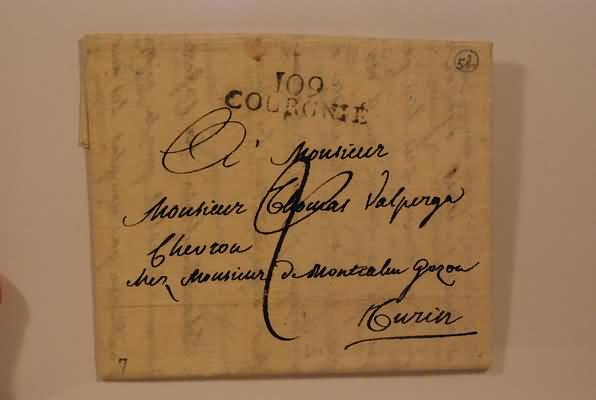 58
109
COURGNIÉ
A Monsieur
Monsieur Thomas Valperga
Chevron
chez Monsieur de Montcalm Gozon
Turin
7